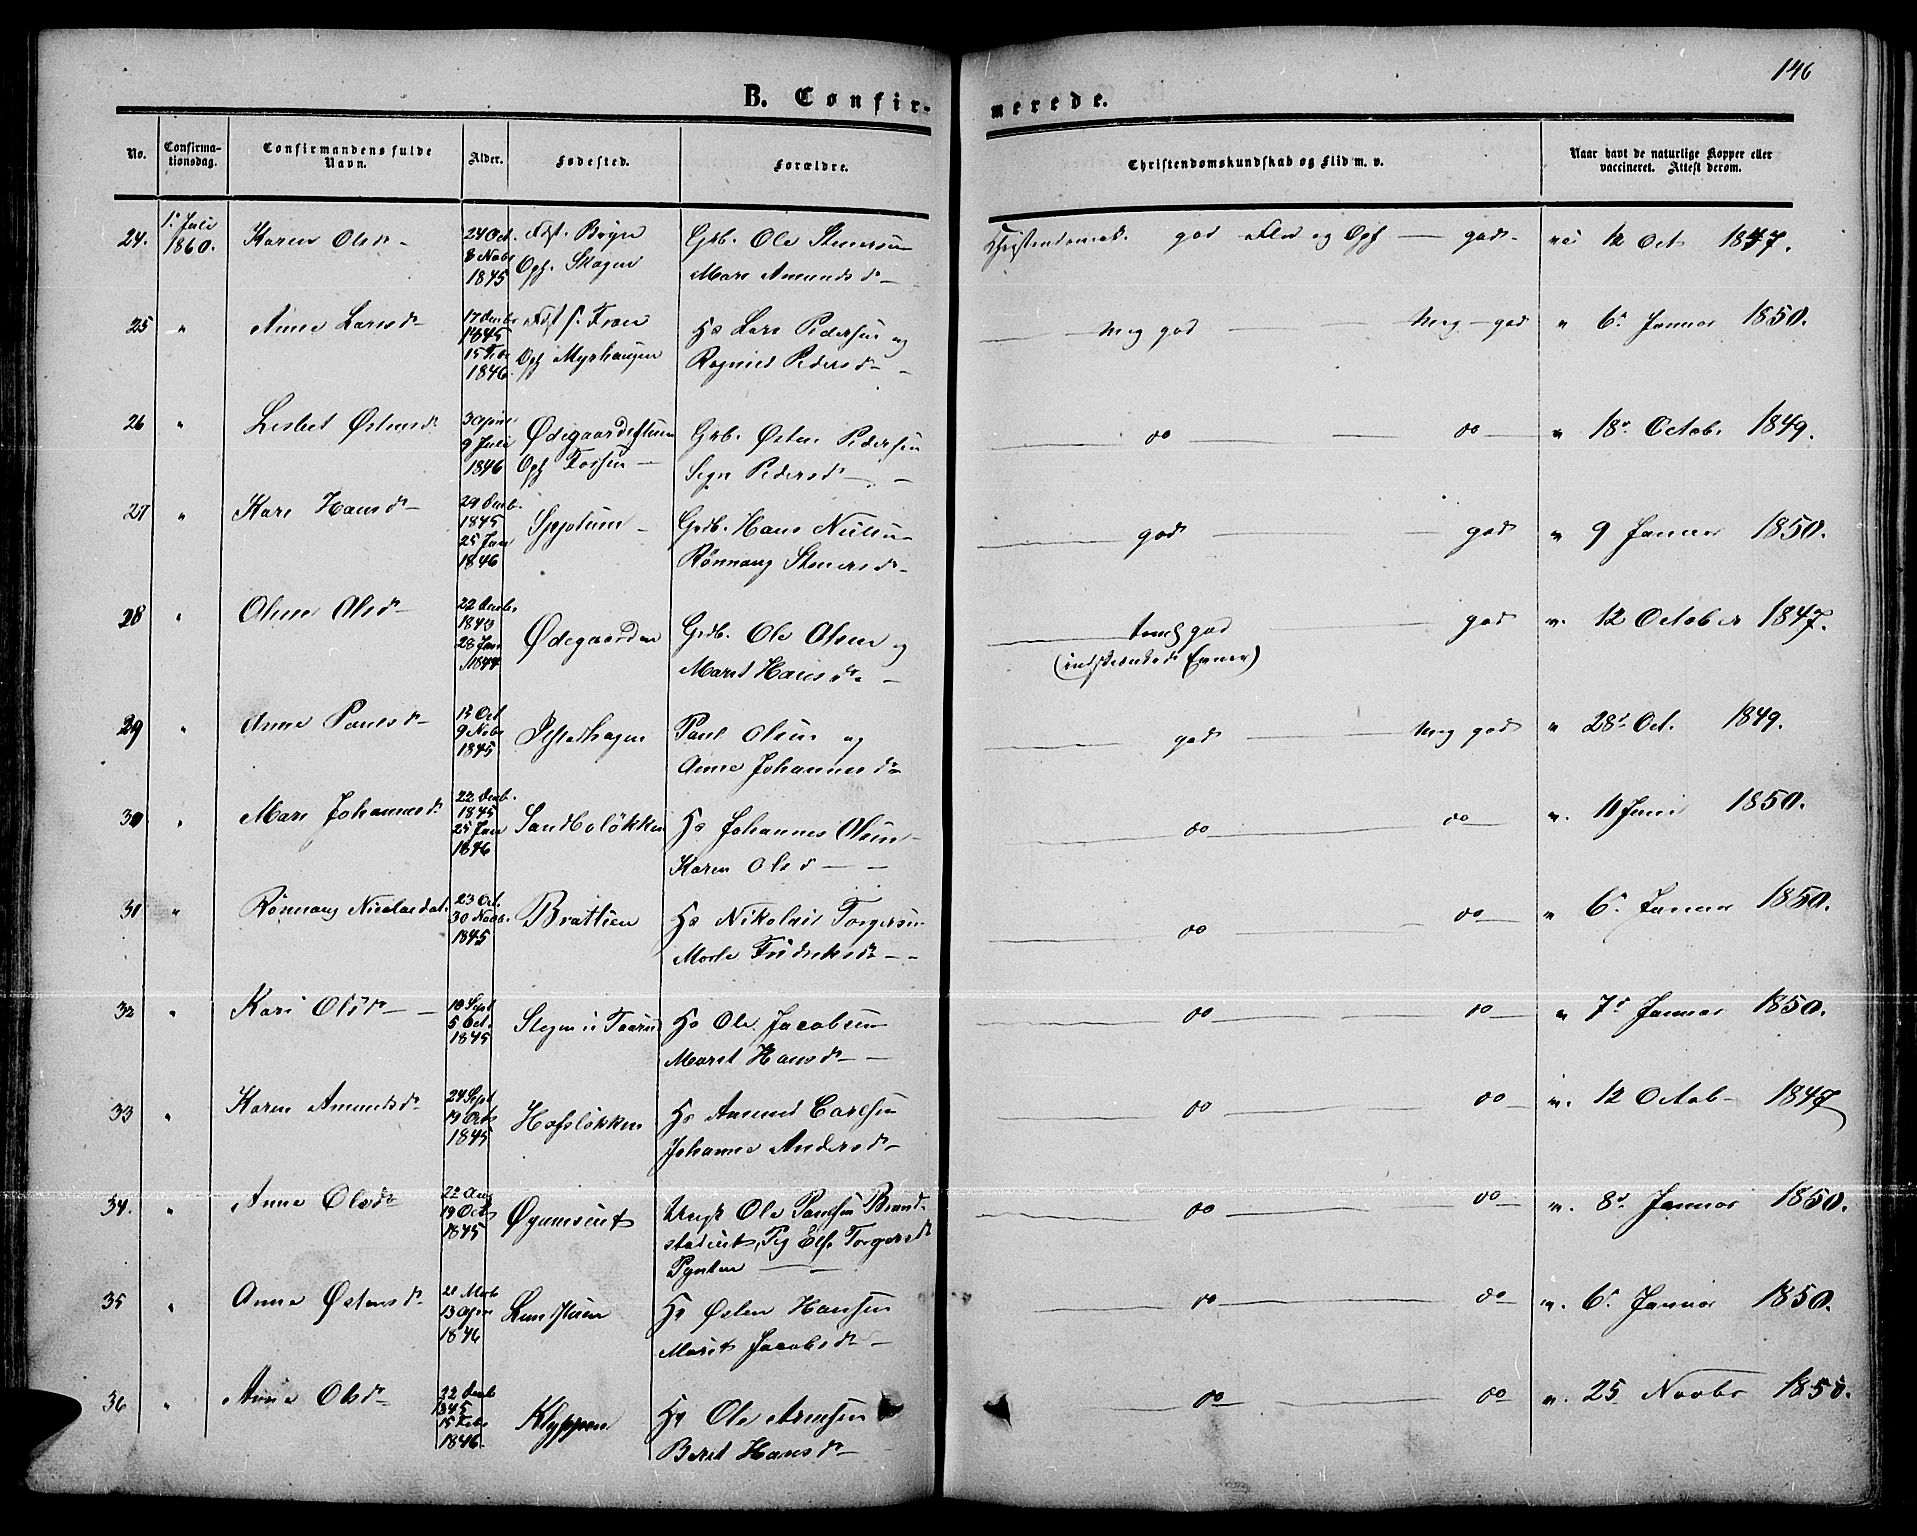 146
B. Confir- merede.
No. Confirma-tionsdag. Confirmandens fulde Navn. Alder. Fødested. Forældre. Christendomskundskab og Flid m. v. Naar havt de naturlige Kopper eller vaccineret. Attest derom.
24. 1. Juli 1860. Karen Olsdr 24 Oct. 8 Novbr 1845 Fdst. Bryn Opf. Skagen Grb. Ole Stenersen
Mari Amundsdr Christendomsk. god Flid og Opf — god v. 12 Oct 1847.
25 " Anne Larsdr 17 Decbr 1845 15 Febr 1846. Opf Myrhaugen Hs Lars Pedersen og
Ragnild Pedersdr meg god meg god " 6. Januar 1850.
26 " Lisbet Østensdr 3 April 9 Juli 1846 Ødegaardstuen Opf Fossen Grb. Østen Pedersen
Pedersdr do do " 18. Octob. 1849.
27 " Kari Hansdr 29 Decb. 1845 25 Jan 1846 Grdb. Hans Nielsen
Rønnaug Stenersdr god god " 9 Januar 1850.
28 " Oline Olsdr 22 Decb. 1843 28 Jan 1844 Ødegaarden Grdb. Ole Olsen og
Marit Hansdr temlg god god v. 12 October 1847.
(indskrænkede Evner)
29 " Anne Paulsdr 13 Oct 9 Novbr 1845 Paul Olsen og
Anne Johannesdr god meg god " 28. Oct. 1849.
30 " Mari Johannesdr 22 Decb. 1845 25 Jan 1846 Sandboløkken Hs Johannes Olsen
Karen Olsd do do v. 11 Juni 1850.
31 " Rønnaug Nicolaidat. 23 Oct. 30 Novb. 1845 Brattlien Hs Nikolai Torgersen
Fredriksdr do do " 6. Januar 1850.
32 " Kari Olsdr 10 Sept 5 Oct. 1845 Hs Ole Jacobsen
Marit Hansdr do do " 7. Januar 1850.
33 " Karen Amundsdr 24 Sept 19 Octb 1845 Hofsløkken Hs Amund Carlsen
Johanne Andersdr do do v. 12 Octob 1847
34. " Anne Olsdr 22 Aug 19 Octb 1845 Ungk Ole Paulsen Brand-
Pig Else Torgersdr
Pynten do do v. 8. Januar 1850.
35 " Anne Østensdr 21 Marts 13 April 1846 Hs Østen Hansen
Marit Jacobsdr do do v. 6. Januar 1850.
36 " Anne Olsdr 22 Decb 1845 15 Febr 1846. Kleppen Hs Ole Arnesen
Berit Hansdr do do v. 25 Novbr 1850.